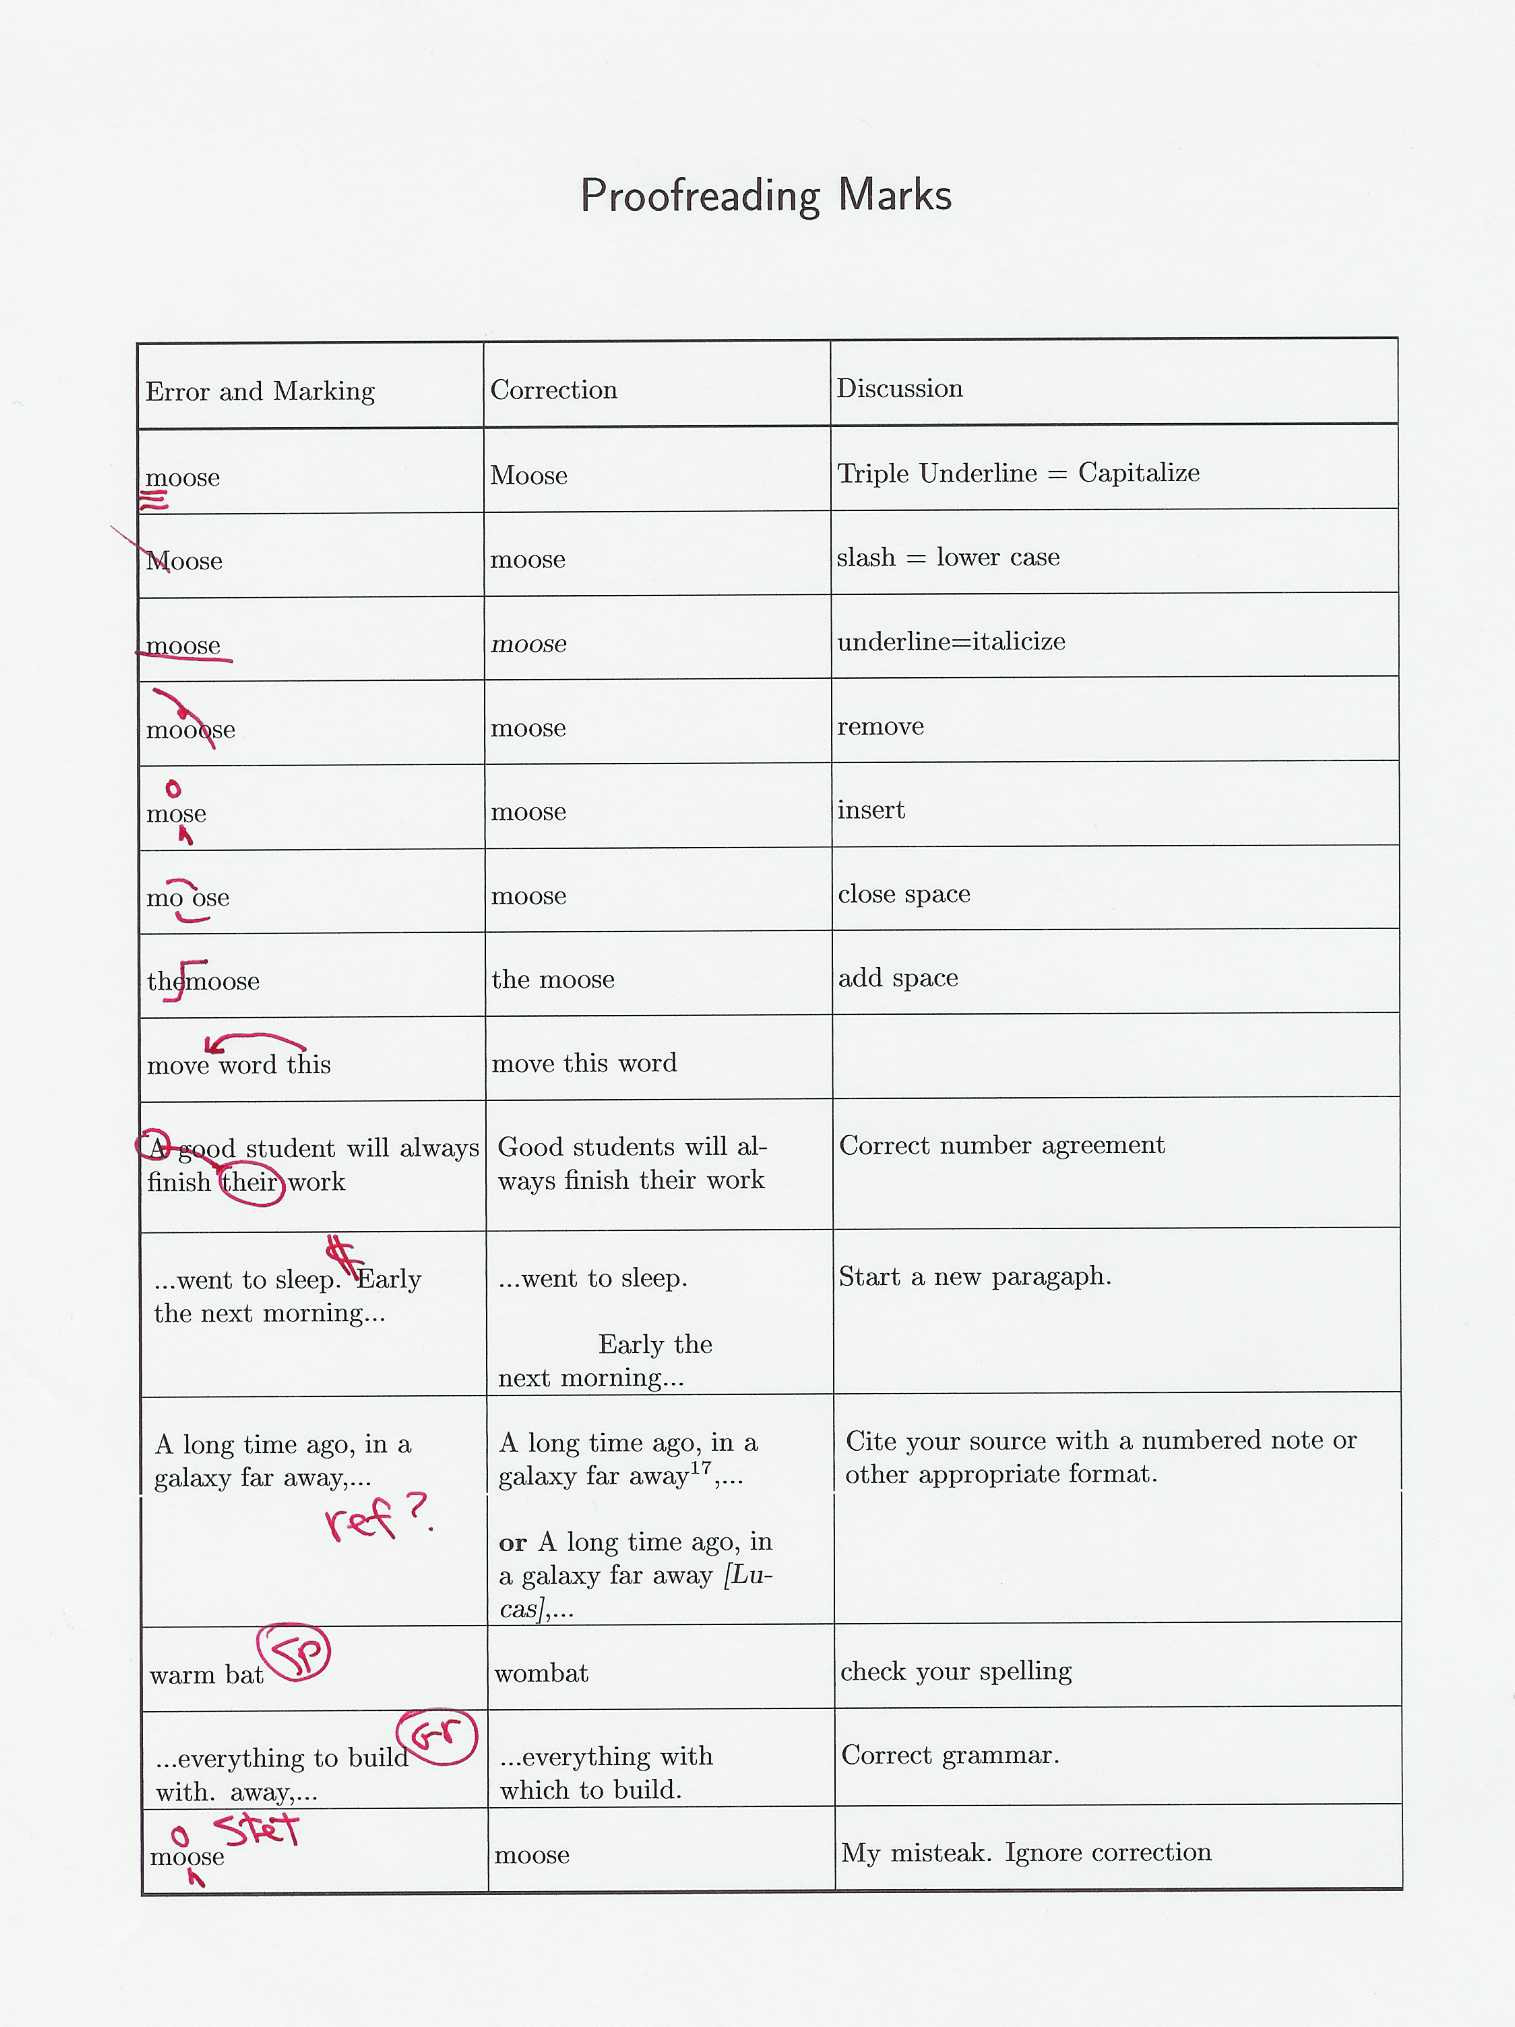 Proofreading Marks
Error and Marking Correction Discussion
moose Moose Triple Underline = Capitalize
Moose moose slash = lower case
moose moose underline=italicize
mooose moose remove
o
mose moose insert
mo ose moose close space
themoose the moose add space
move word this move this word
A good student will always Good students will al- Correct number agreement
finish their work ways finish their work
...went to sleep. Early ...went to sleep. Start a new paragaph.
the next morning...
Early the
next morning...
A long time ago, in a A long time ago, in a Cite your source with a numbered note or
galaxy far away,... galaxy far away17,... other appropriate format.
ref?
or A long time ago, in
a galaxy far away [Lu-
cas],...
Sp
warm bat wombat check your spelling
Gr
...everything to build ...everything with Correct grammar.
with. away,... which to build.
o Stet
moose moose My misteak. Ignore correction